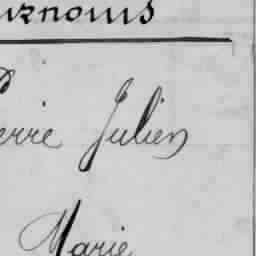 urnoms
erre Julien
Marie